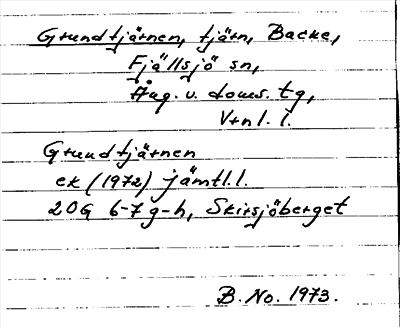 Grundtjärnen, tjärn, Backe,
Fjällsjö sn,
Ång. v. doms. tg,
Vtnl. l.
Grundtjärnen
ek (1972) jämtl.l.
20G 6-7 g-h, Skirsjöberget
B. No. 1973.